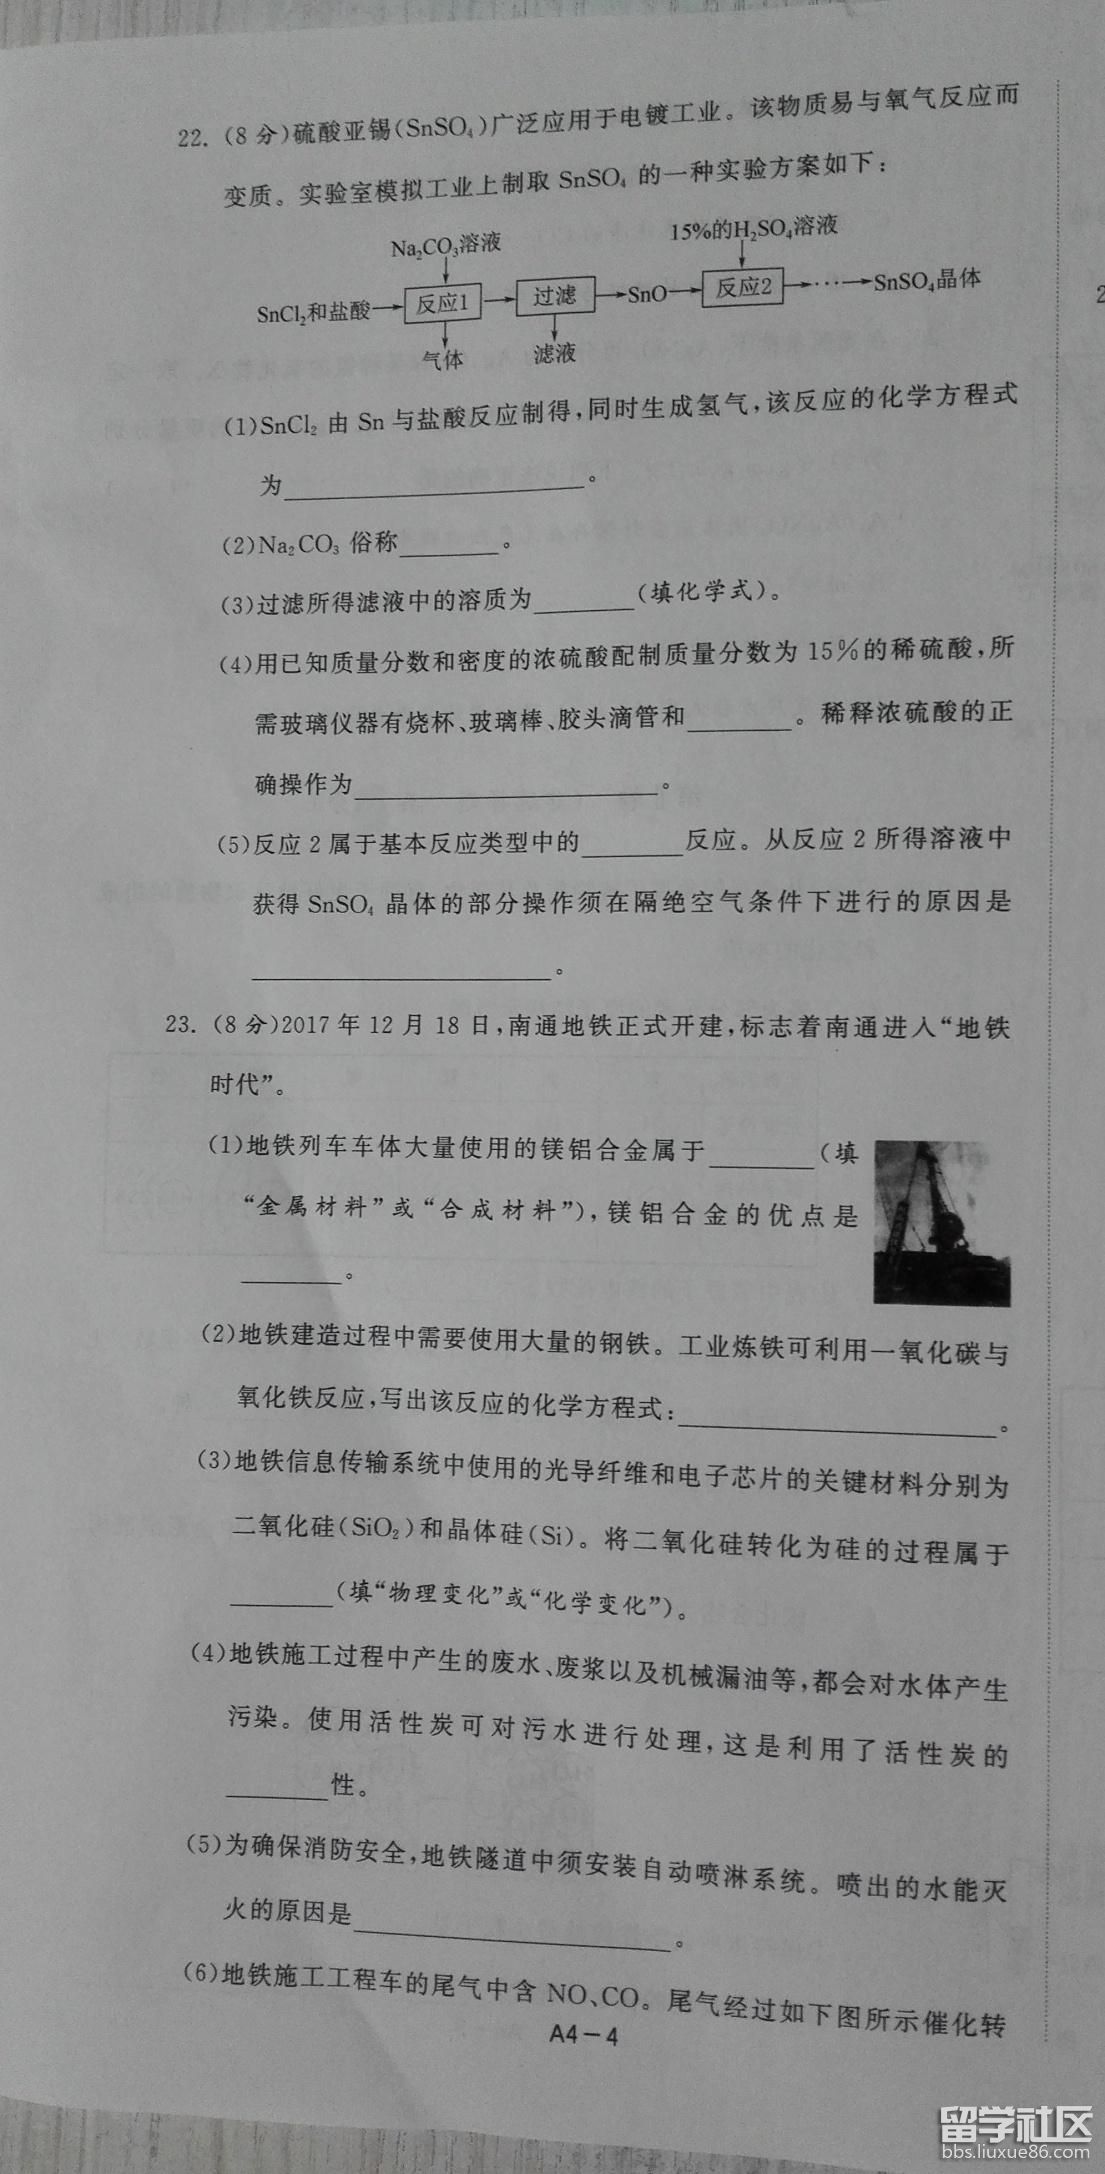 22. (8 分)硫酸亚锡(SnSO₄)广泛应用于电镀工业。该物质易与氧气反应而
变质。实验室模拟工业上制取 SnSO₄ 的一种实验方案如下：
Na₂CO₃溶液
15%的H₂SO₄溶液
SnCl₂和盐酸→反应1→过滤→SnO→反应2→…→SnSO₄晶体
气体
滤液
(1)SnCl₂ 由 Sn 与盐酸反应制得,同时生成氢气,该反应的化学方程式
为____________。
(2)Na₂CO₃ 俗称______。
(3)过滤所得滤液中的溶质为______(填化学式)。
(4)用已知质量分数和密度的浓硫酸配制质量分数为 15%的稀硫酸,所
需玻璃仪器有烧杯、玻璃棒、胶头滴管和______。稀释浓硫酸的正
确操作为____________。
(5)反应 2 属于基本反应类型中的______反应。从反应 2 所得溶液中
获得 SnSO₄ 晶体的部分操作须在隔绝空气条件下进行的原因是
____________。
23. (8 分)2017 年 12 月 18 日,南通地铁正式开建,标志着南通进入“地铁
时代”。
(1)地铁列车车体大量使用的镁铝合金属于______(填
“金属材料”或“合成材料”),镁铝合金的优点是
______。
(2)地铁建造过程中需要使用大量的钢铁。工业炼铁可利用一氧化碳与
氧化铁反应,写出该反应的化学方程式:____________。
(3)地铁信息传输系统中使用的光导纤维和电子芯片的关键材料分别为
二氧化硅(SiO₂)和晶体硅(Si)。将二氧化硅转化为硅的过程属于
______(填“物理变化”或“化学变化”)。
(4)地铁施工过程中产生的废水、废浆以及机械漏油等,都会对水体产生
污染。使用活性炭可对污水进行处理,这是利用了活性炭的
______性。
(5)为确保消防安全,地铁隧道中须安装自动喷淋系统。喷出的水能灭
火的原因是____________。
(6)地铁施工工程车的尾气中含 NO、CO。尾气经过如下图所示催化转
A4－4
留学社区
bbs.liuxue86.com